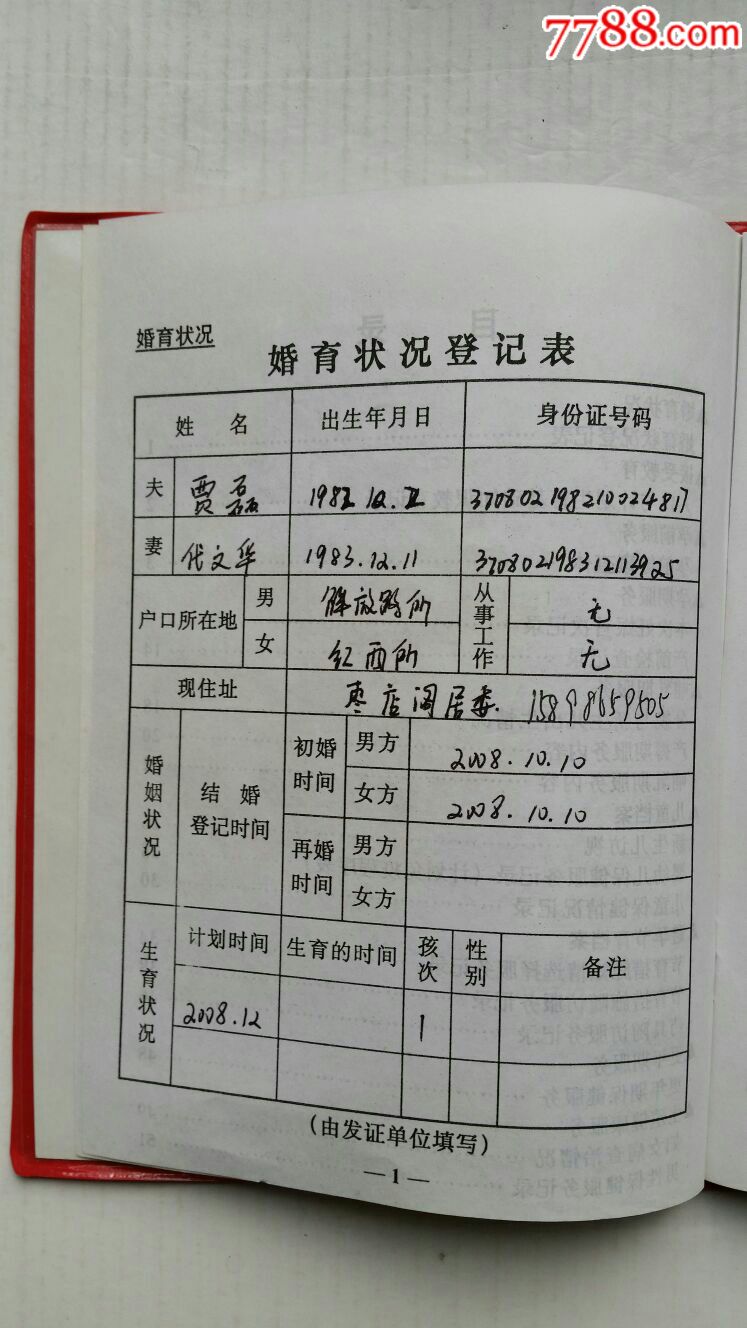 7788.com
婚育状况
婚育状况登记表
姓 名 出生年月日 身份证号码
夫 贾磊 1982.10.2 370802198210024817
妻 代文华 1983.12.11 370802198312113925
户口所在地 男 解放路所 从事工作 无
女 红西所 无
现住址 枣店阁居委. 15898659505
婚姻状况 结婚登记时间 初婚时间 男方 2008.10.10
女方 2008.10.10
再婚时间 男方
女方
生育状况 计划时间 生育的时间 孩次 性别 备注
2008.12 1
(由发证单位填写)
—1—